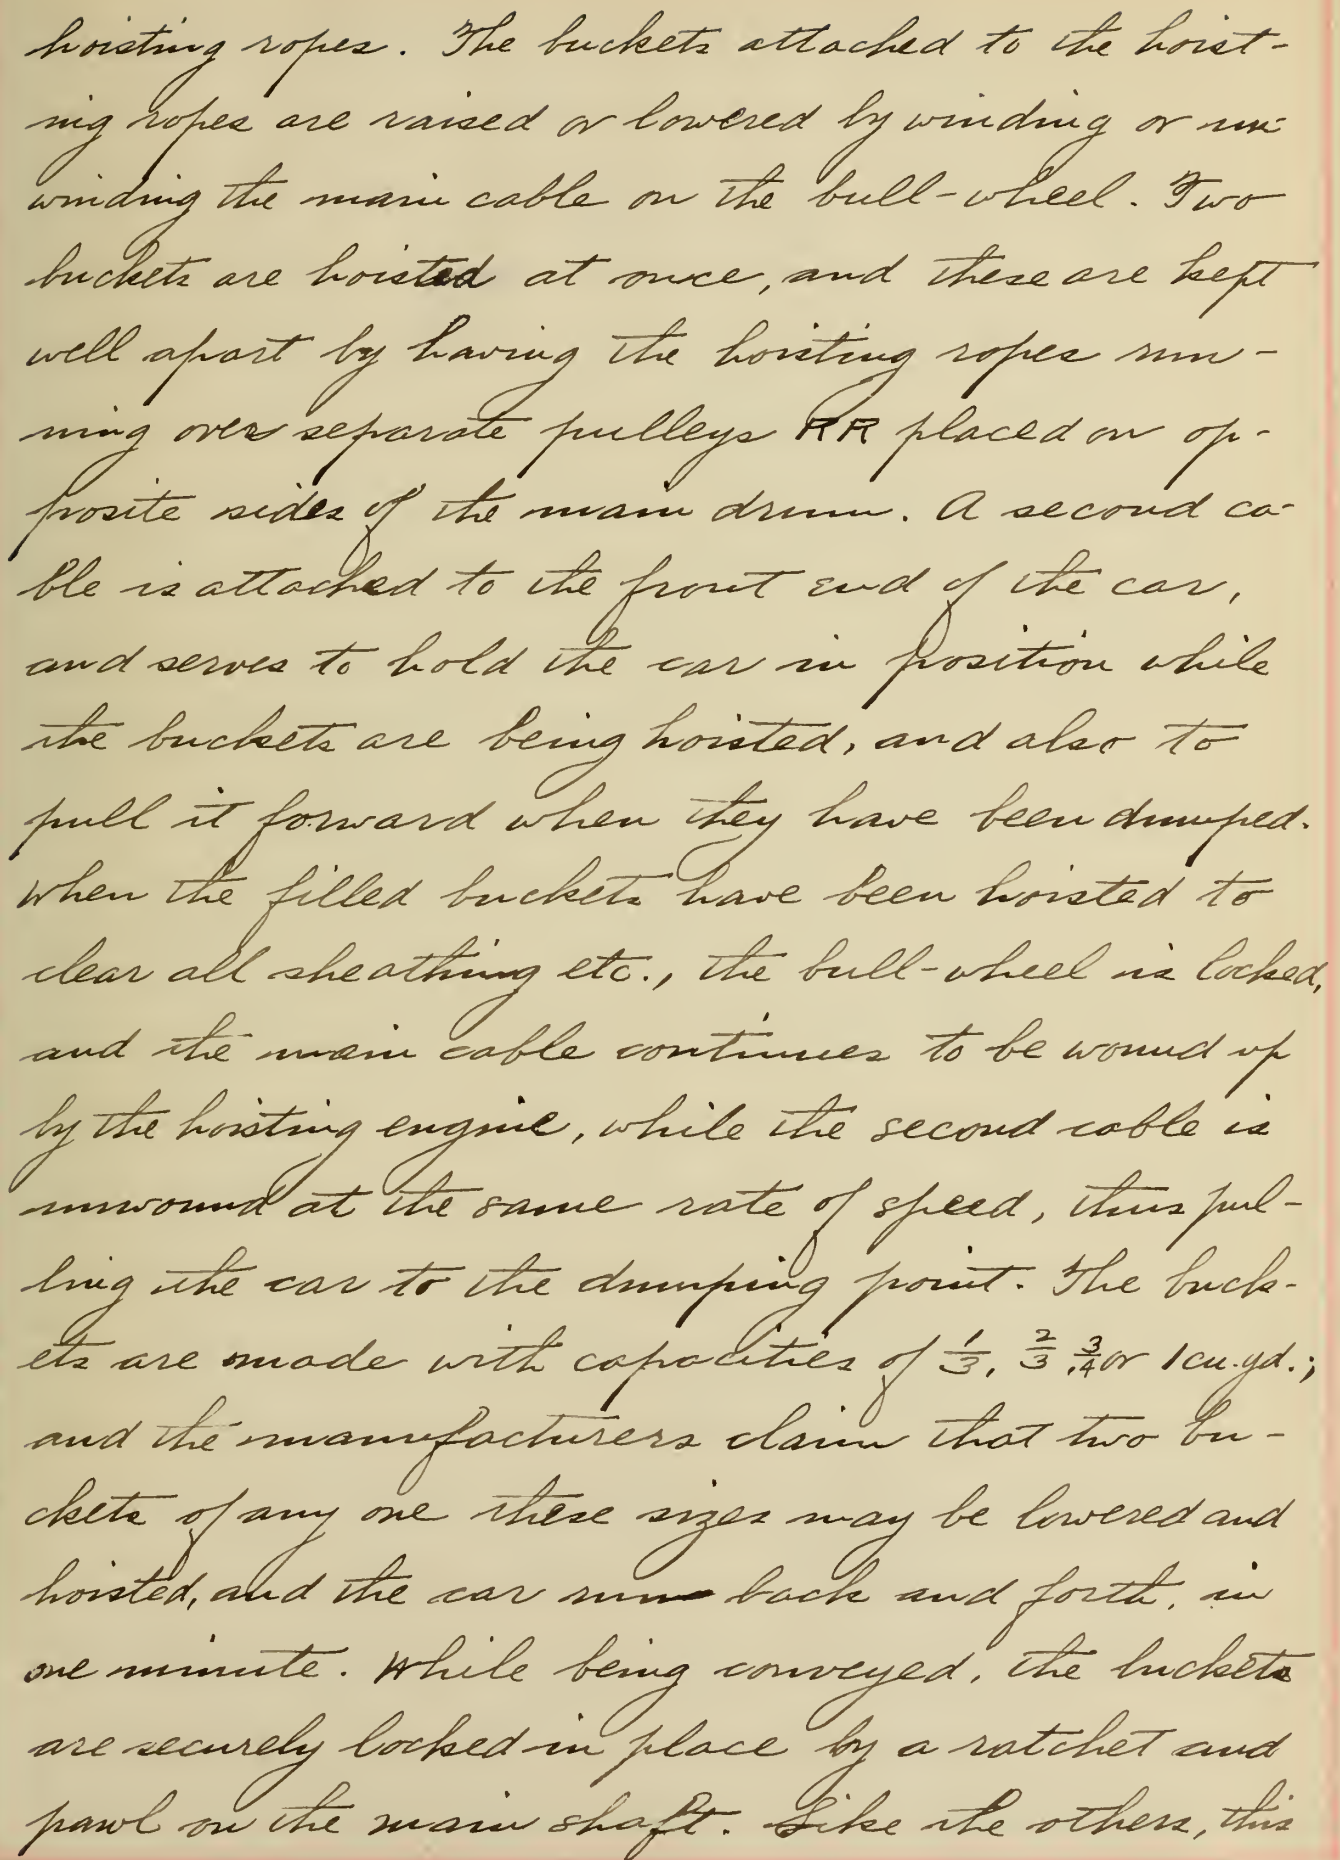 hoisting ropes. The buckets attached to the hoist-
ing ropes are raised or lowered by winding or un-
winding the main cable on the bull-wheel. Two
buckets are hoisted at once, and these are kept
well apart by having the hoisting ropes run-
ning over separate pulleys RR placed on op-
posite sides of the main drum. A second ca-
ble is attached to the front end of the car,
and serves to hold the car in position while
the buckets are being hoisted, and also to
pull it forward when they have been dumped.
When the filled buckets have been hoisted to
clear all sheathing etc., the bull-wheel is locked,
and the main cable continues to be wound up
by the hoisting engine, while the second cable is
unwound at the same rate of speed, thus pul-
ling the car to the dumping point. The buck-
ets are made with capacities of 1/3, 2/3 3/4 or 1 cu. yd.;
and the manufacturers claim that two bu-
ckets of any one these sizes may be lowered and
hoisted, and the car run back and forth, in
one minute. While being conveyed, the buckets
are securely locked in place by a ratchet and
pawl on the main shaft. Like the others, this